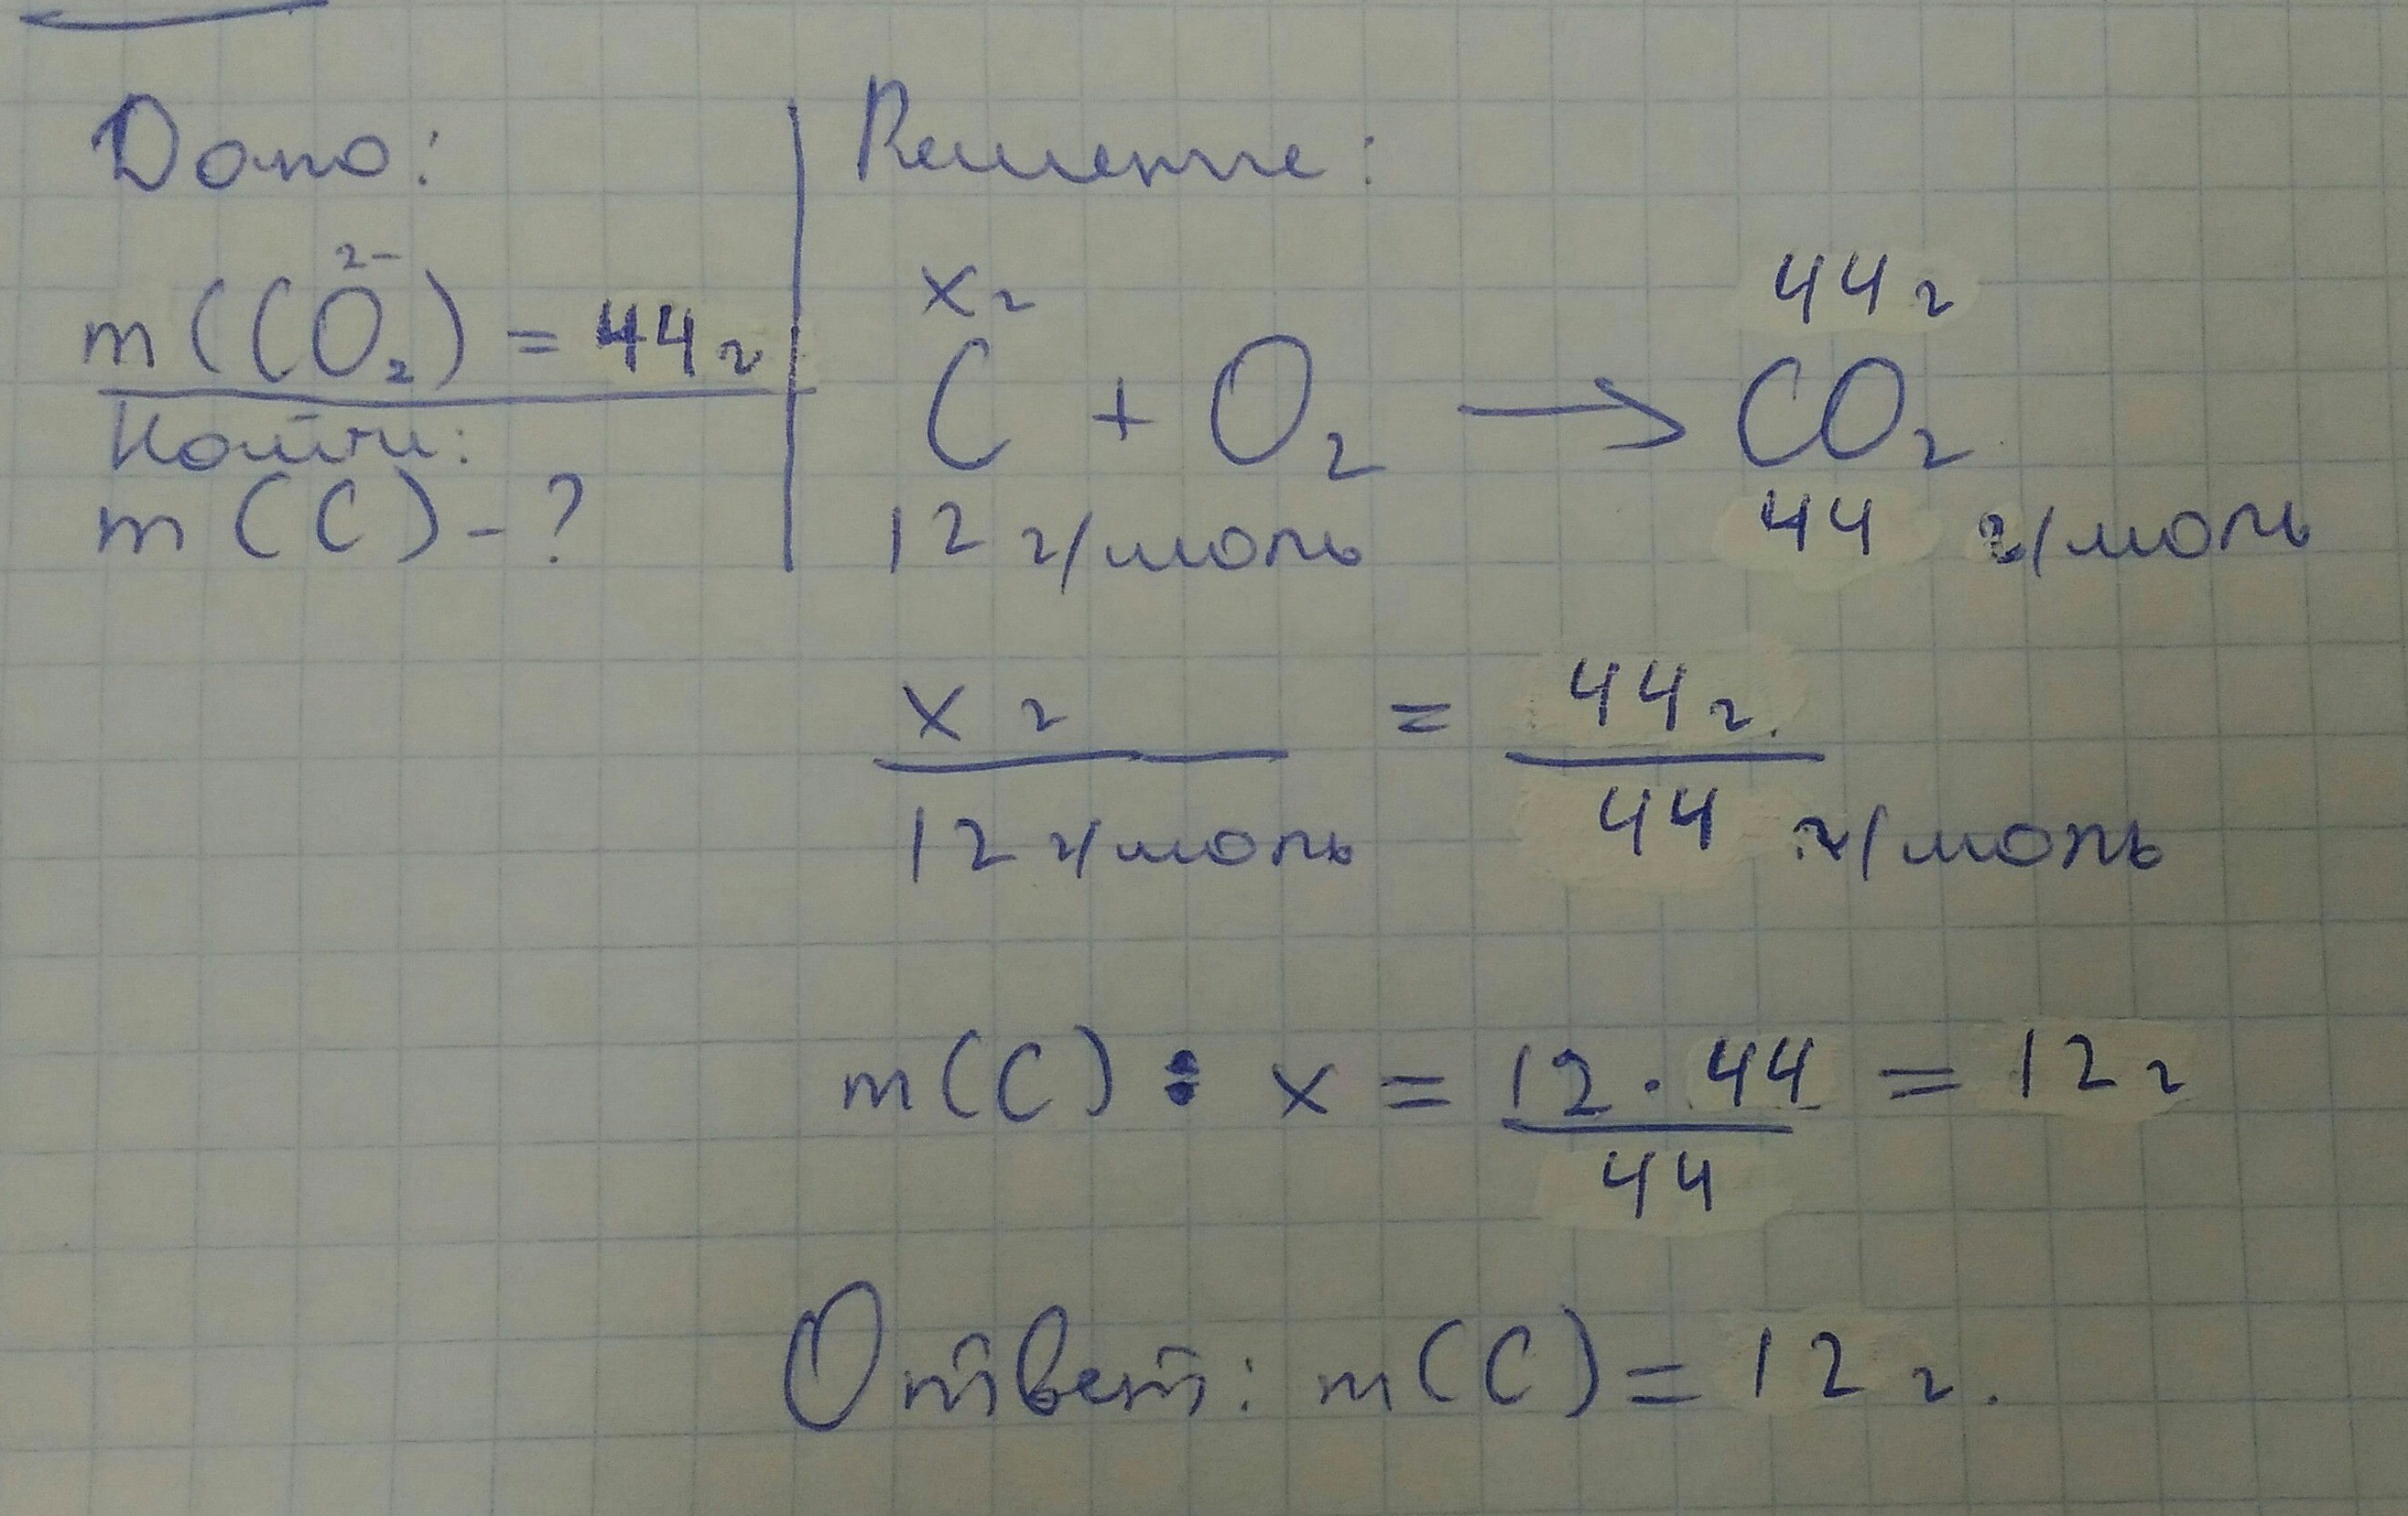 Дано:
m(CO₂) = 44 г
2-
Найти:
m(C) - ?
Решение:
x г
44 г
C + O₂ → CO₂
12 г/моль
44 г/моль
x г = 44 г.
12 г/моль
44 г/моль
m(C) : x = 12 · 44 = 12 г
44
Ответ: m(C) = 12 г.